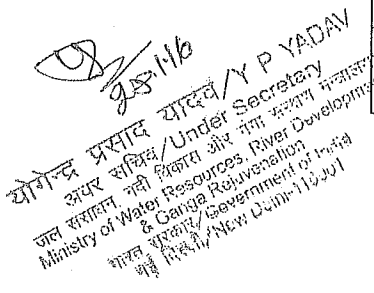 28.1.16
योगेन्द्र प्रसाद यादव/Y P YADAV
अवर सचिव/Under Secretary
जल संसाधन, नदी विकास और गंगा संरक्षण मंत्रालय
Ministry of Water Resources, River Developme
& Ganga Rejuvenation
भारत सरकार/Government of India
नई दिल्ली/New Delhi-110001